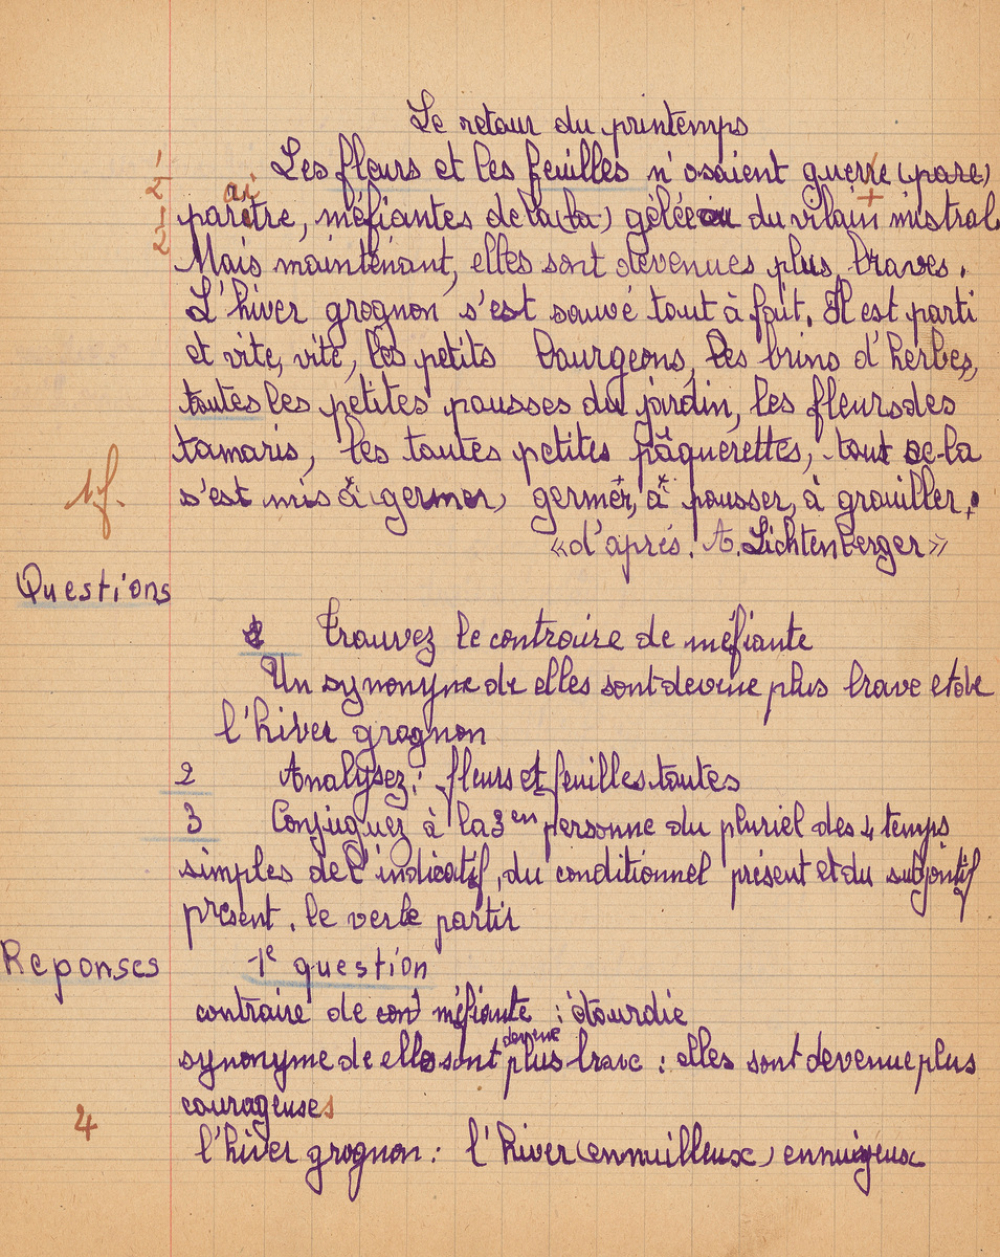 Le retour du printemps
Les fleurs et les feuilles n'osaient guerre (pare)
paraître, méfiantes de la (la) gélée ou du vilain mistral.
Mais maintenant, elles sont devenues plus braves.
L'hiver grognon s'est sauvé tout à fait. Il est parti
et vite, vite, les petits bourgeons, les brins d'herbes,
toutes les petites pousses du jardin, les fleurs des
tamaris, les toutes petites pâquerettes, tout ce la
1f. s'est mis à (germer) germer, à pousser, à grouiller.
«d'après. A. Lichtenberger»
Questions
trouvez le contraire de méfiante
Un synonyme de elles sont devenue plus brave et de
l'hiver grognon
2 Analysez: fleurs et feuilles toutes
3 Conjuguez à la 3en personne du pluriel des 4 temps
simples de l'indicatif, du conditionnel présent et du subjontif
présent. le verbe partir
Reponses 1e question
contraire de cont méfiante : étourdie
synonyme de elle sont devenue plus brave : elles sont devenue plus
courageuses
4 l'hiver grognon : l'hiver (ennuilleux) ennuiyeux